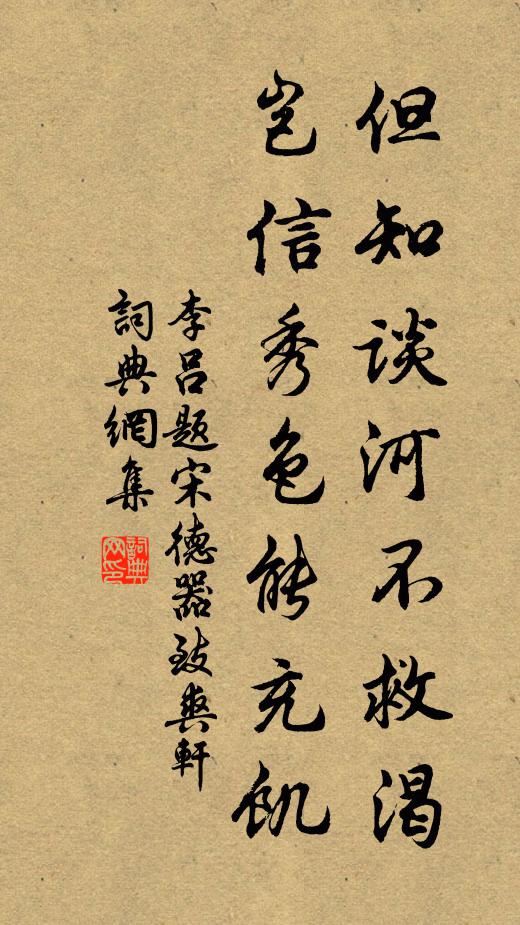 但知谈河不救渴
岂信秀色能充饥
李吕题宋德器致爽轩
詞典網集
詞典网印